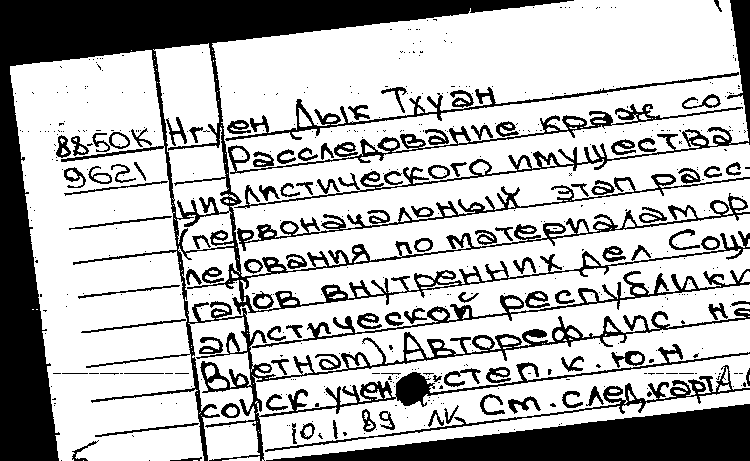 Нгуен Дык Тхуан
88-50К
9621
Расследование краж со-
циалистического имущества
(первоначальных этап расс-
ледования по материалам ор
ганов внутренних дел Соци
алистической республики
Вьетнам): Автореф. дис. на
соиск. учен степ. к. ю. н.
10.1.89 ЛК См. след. карт